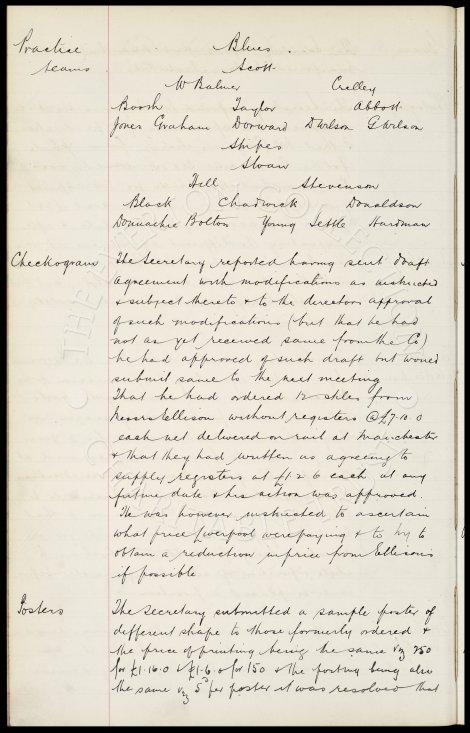 Practice teams
Blues.
Scott
W Balmer Crelley
Booth Taylor Abbott
Jones Graham Dorward D Wilson G Wilson
Stripes
Sloan
Hill Stevenson
Black Chadwick Donaldson
Donnachie Bolton Young Settle Hardman
Checkograms
The Secretary reported having sent draft
agreement with modifications as instructed
& subject thereto & to the directors approval
of such modifications (but that he had
not as yet received same from the Co)
he had approved of such draft but would
submit same to the next meeting
That he had ordered 12 stiles from
Messrs Ellison without registers @ £7.10.0
each net delivered on rail at Manchester
& that they had written us agreeing to
supply registers at £1.2.6 each at any
future date & his action was approved.
He was however instructed to ascertain
what price Liverpool were paying & to try to
obtain a reduction in price from Ellisons
if possible
Posters
The Secretary submitted a sample poster of
different shape to those formerly ordered &
the price of printing being the same viz 250
for £1.16.0 & £1.6.0 for 150 & the posting being also
the same viz per poster it was resolved that